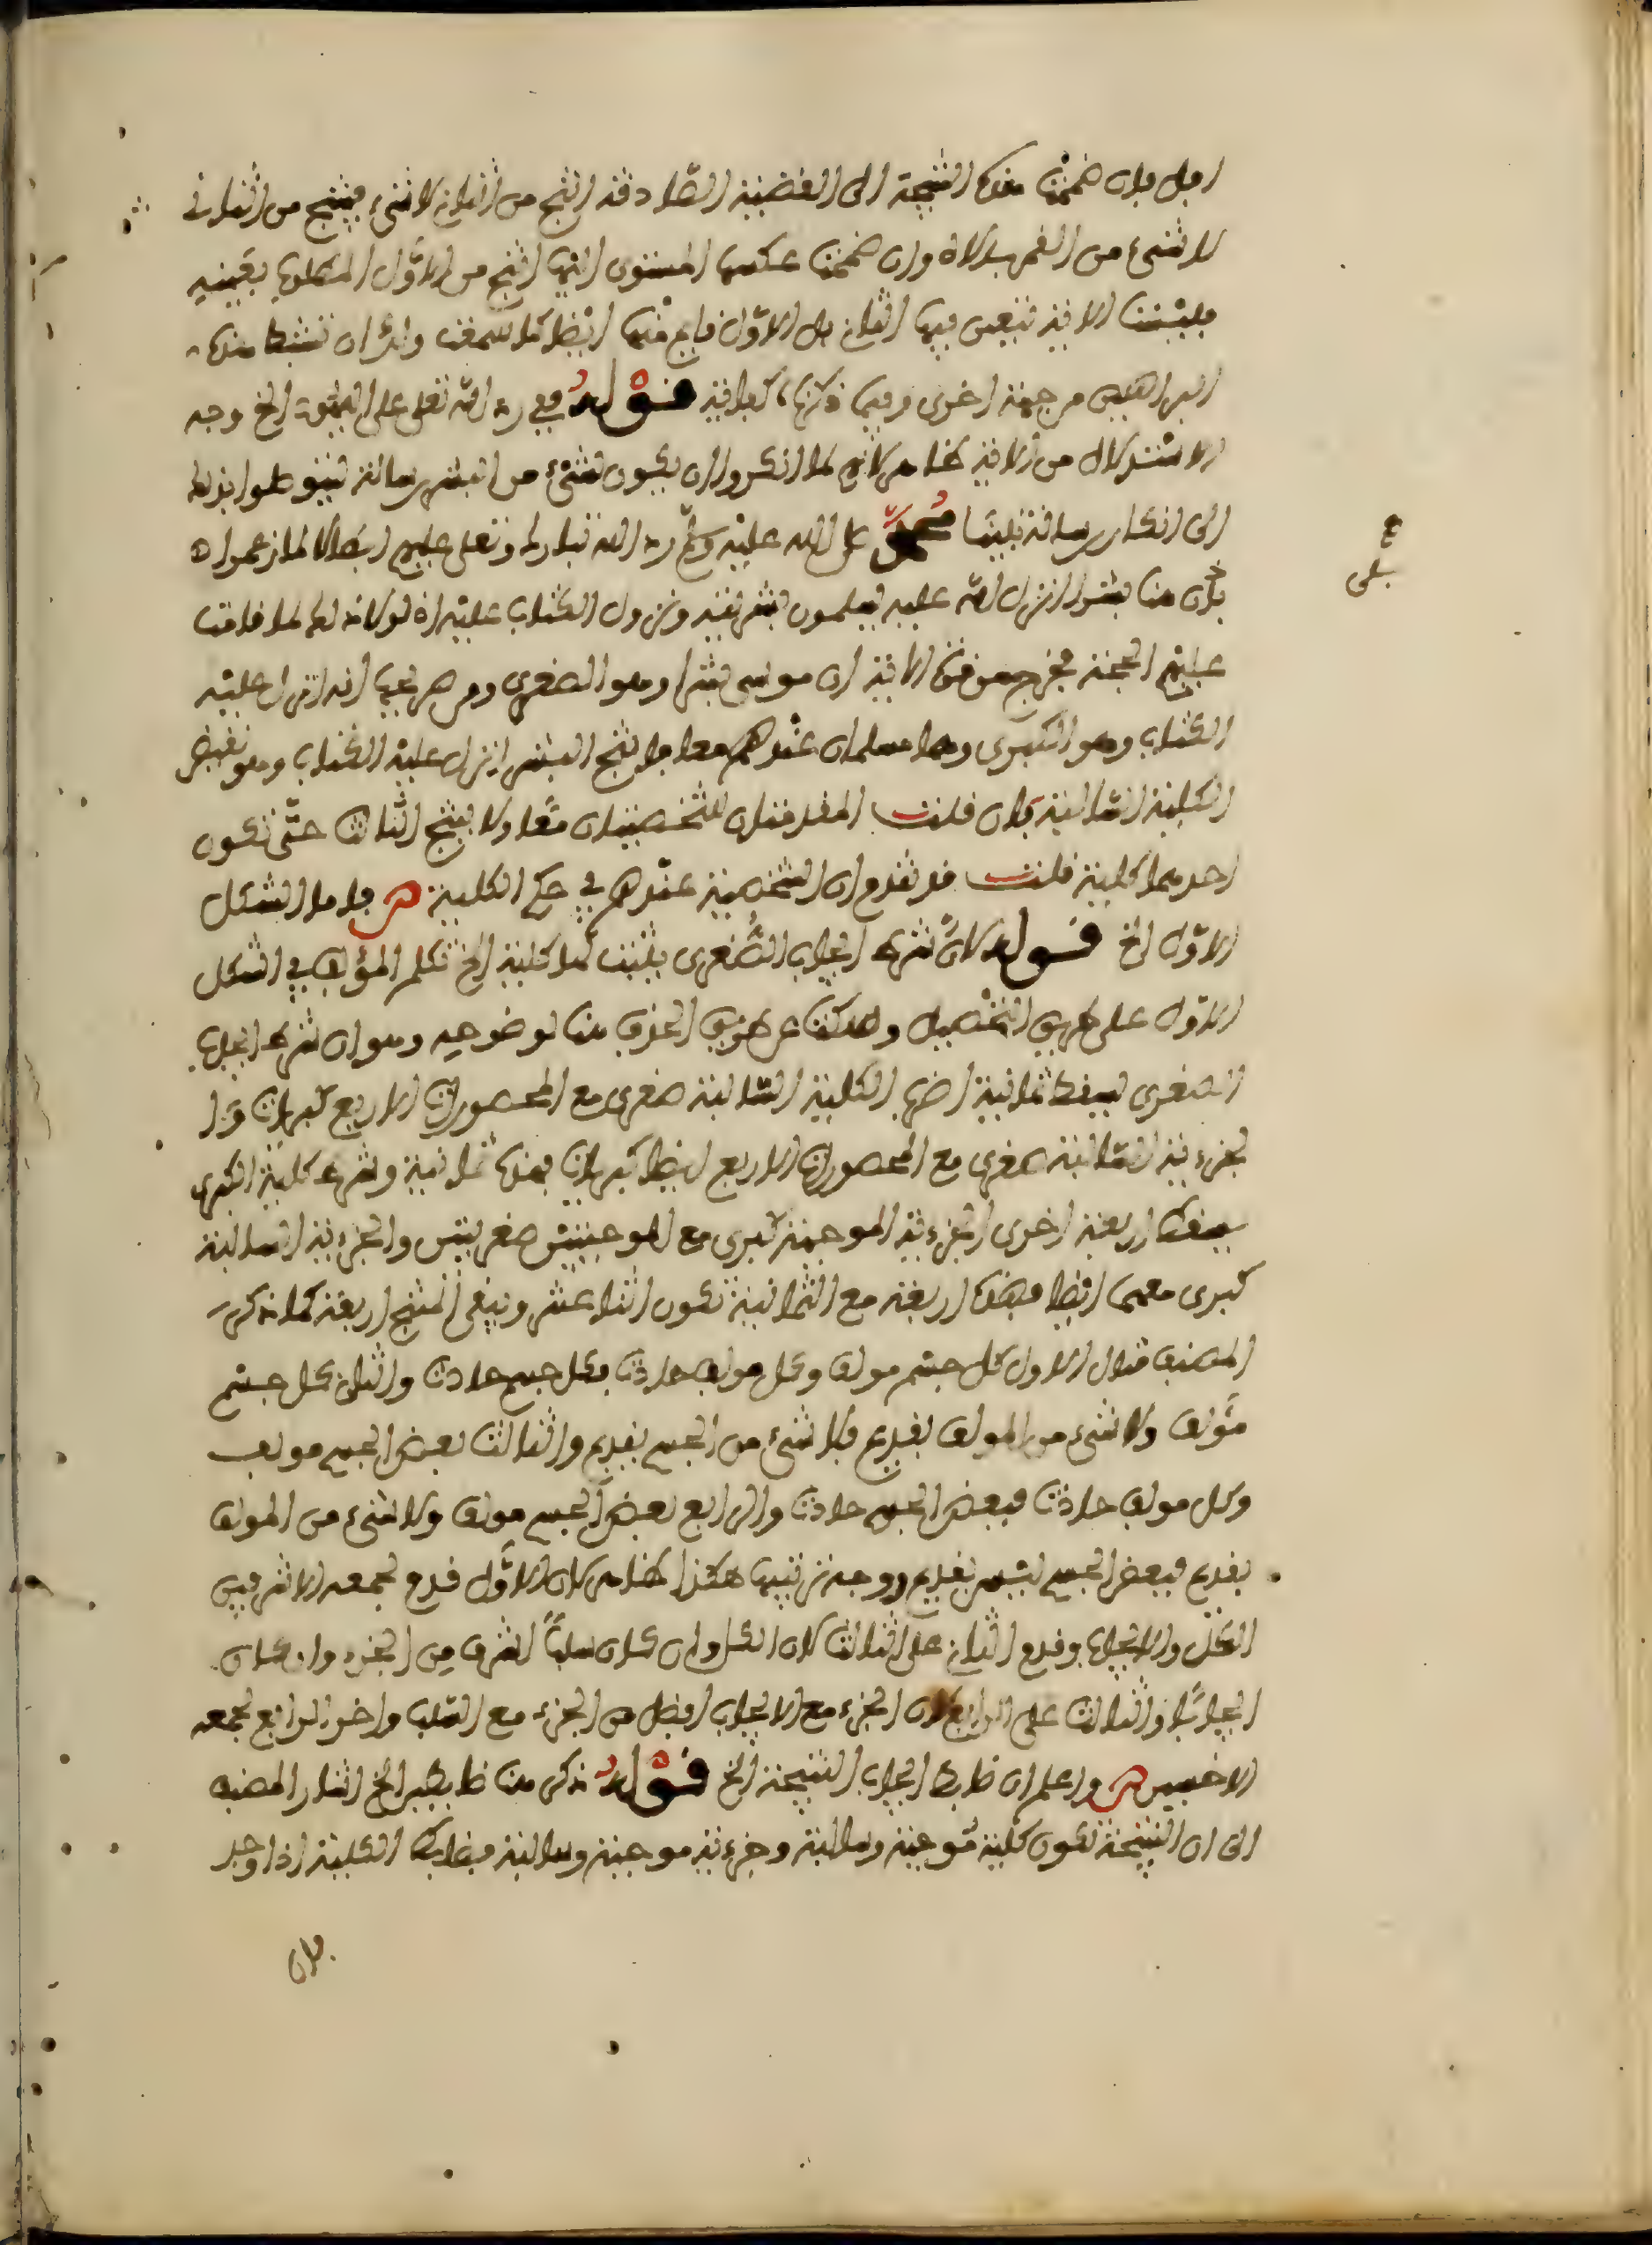 افل فان ضممت هذه النتيجة الى القضية الصادقة انتج من الثاني لا شيء فينتج من الثاني
لا شيء من القمر بالاه وان ضممت عكسها المستوى اليها انتج من الاول المطلوب بعينه
فليست الاية تتعين فيها الثاني بل الاول قايم منها ايضا كما سمعت ولك ان تستنبط منها
البراهين من جهة اخرى وفيما ذكرناه كفاية قوله ففي رد الله تعلى على اليهود الخ وجه
الاستدلال من الاية هذا هو لانهم لما انكروا ان يكون شيء من البشر رسالة ليتوصلوا بذلك
الى انكار رسالة نبينا محمد صلى الله عليه وسلم رد الله تبارك وتعلى عليهم ابطالا لما زعموا
بان هنا بشرا انزل الله عليه يعلمون بشريته ونزول الكتاب عليه اذ لو كانوا لما قامت
عليهم الحجة فخرج من قوة الاية ان موسى بشر وهو الصغرى ومن صريحها انه انزل عليه
الكتاب وهو الكبرى وهما مسلمان عندهم معا فانتج البشر انزل عليه الكتاب وهو نقيض
الكلية السالبة فان قلت المقدمتان الشخصيتان معا ولا ينتج الثالث حتى تكون
احديهما كلية قلت قد تقدم ان الشخصية عندهم في حكم الكلية ص فاما الشكل
الاول الخ قوله لان شرط ايجاب الصغرى يثبت كما كلية الخ تكلم المؤلف في الشكل
الاول على طريق التحصيل وسكت عن طريق الحذف هنا لوضوحه وهو ان شرط ايجاب
الصغرى يسقط ثمانية اضرب الكلية السالبة صغرى مع المحصورات الاربع كبريات وا
لجزءية السالبة صغرى مع المحصورات الاربع ايضا كبريات فهذه ثمانية وشرط كلية الكبرى
يسقط اربعة اخرى الجزءية الموجبة كبرى مع الموجبتين صغريتين والجزءية السالبة
كبرى معهما ايضا فهذه اربعة مع الثمانية تكون اثنا عشر ويبقى المنتج اربعة كما ذكر
المصنف مثال الاول كل جسم مولف وكل مولف حادث فكل جسم حادث والثاني كل جسم
مؤلف ولا شيء من المولف بقديم فلا شيء من الجسم بقديم والثالث بعض الجسم مولف
وكل مولف حادث فبعض الجسم حادث والرابع بعض الجسم مولف ولا شيء من المولف
بقديم فبعض الجسم ليس بقديم ووجه ترتيبها هكذا هذا هو لان الاول قدم لجمعه الاشرفين
الكل والايجاب وقدم الثاني على الثالث لان الكل وان كان سلبا اشرف من الجزء وان كان
ايجابيا والثالث على الرابع لان الجزء مع الايجاب افضل من الجزء مع السلب واخر الرابع لجمعه
الاخسين ص واعلم ان ضابط ايجاب النتيجة الخ قوله ذكر هنا ضابطين الخ اشار المصنف
الى ان النتيجة تكون كلية موجبة وسالبة وجزءية موجبة وسالبة فضابط الكلية اذا وجد
فان
بلى